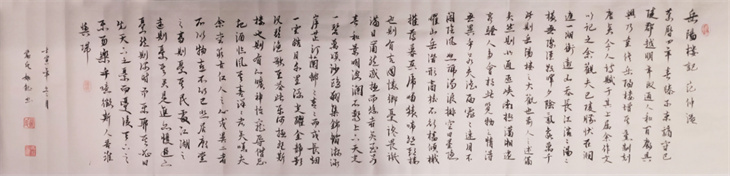 岳陽樓記 范仲淹
慶曆四年春滕子京謫守巴
陵郡越明年政通人和百廢具
興乃重修岳陽樓增其舊制刻
唐賢今人詩賦于其上屬余作文
以記之余觀夫巴陵勝狀在洞
庭一湖銜遠山吞長江浩浩湯湯
橫無際涯朝暉夕陰氣象萬千
此則岳陽樓之大觀也前人之述備
矣然則北通巫峽南極瀟湘遷
客騷人多會於此覽物之情得
無異乎若夫淫雨霏霏連月不
開陰風怒號濁浪排空日星隱
曜山岳潛形商旅不行檣傾楫
摧薄暮冥冥虎嘯猿啼登斯樓
也則有去國懷鄉憂讒畏譏
滿目蕭然感極而悲者矣至若
春和景明波瀾不驚上下天光
一碧萬頃沙鷗翔集錦鱗游泳
岸芷汀蘭郁郁青青而或長煙
一空皓月千里浮光躍金靜影
沉璧漁歌互答此樂何極登斯
樓也則有心曠神怡寵辱偕忘
把酒臨風其喜洋洋者矣嗟夫
余嘗求古仁人之心或異二者
不以物喜不以己悲居廟堂
之高則憂其民處江湖之
遠則憂其君是進亦憂退亦
憂然則何時而樂耶其必曰
先天下之憂而憂後天下之
樂而樂乎噫微斯人吾誰
與歸